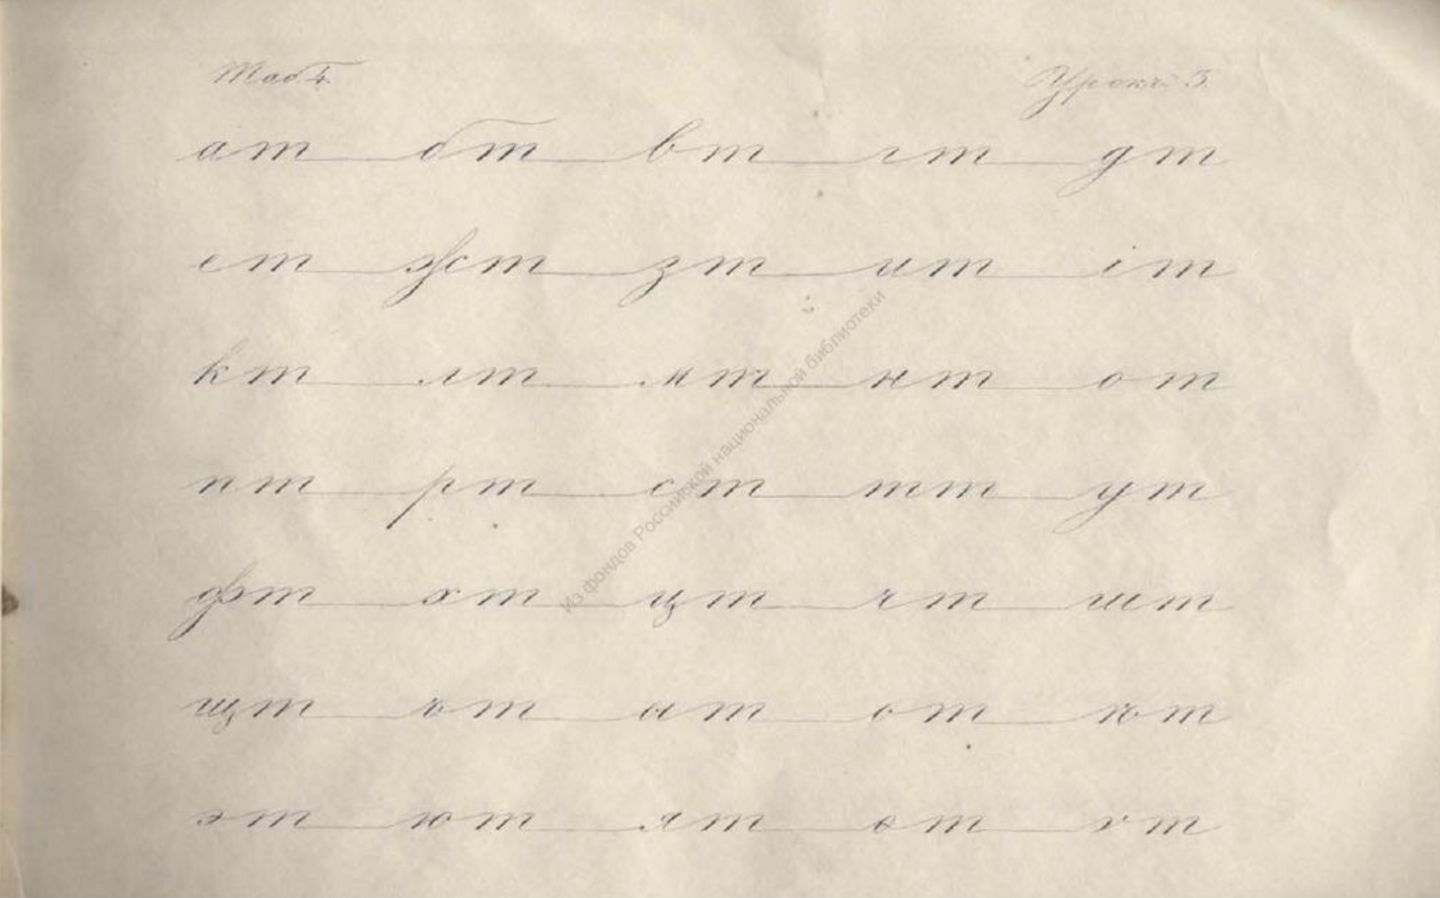 Таб. 4. Урокъ 3.
ат бт вт гт дт
ет жт зт ит іт
кт лт мт нт от
пт рт ст тт ут
фт хт цт чт шт
щт ът ыт ьт ѣт
эт ют ят ѳт ѵт
Из фондов Российской национальной библиотеки